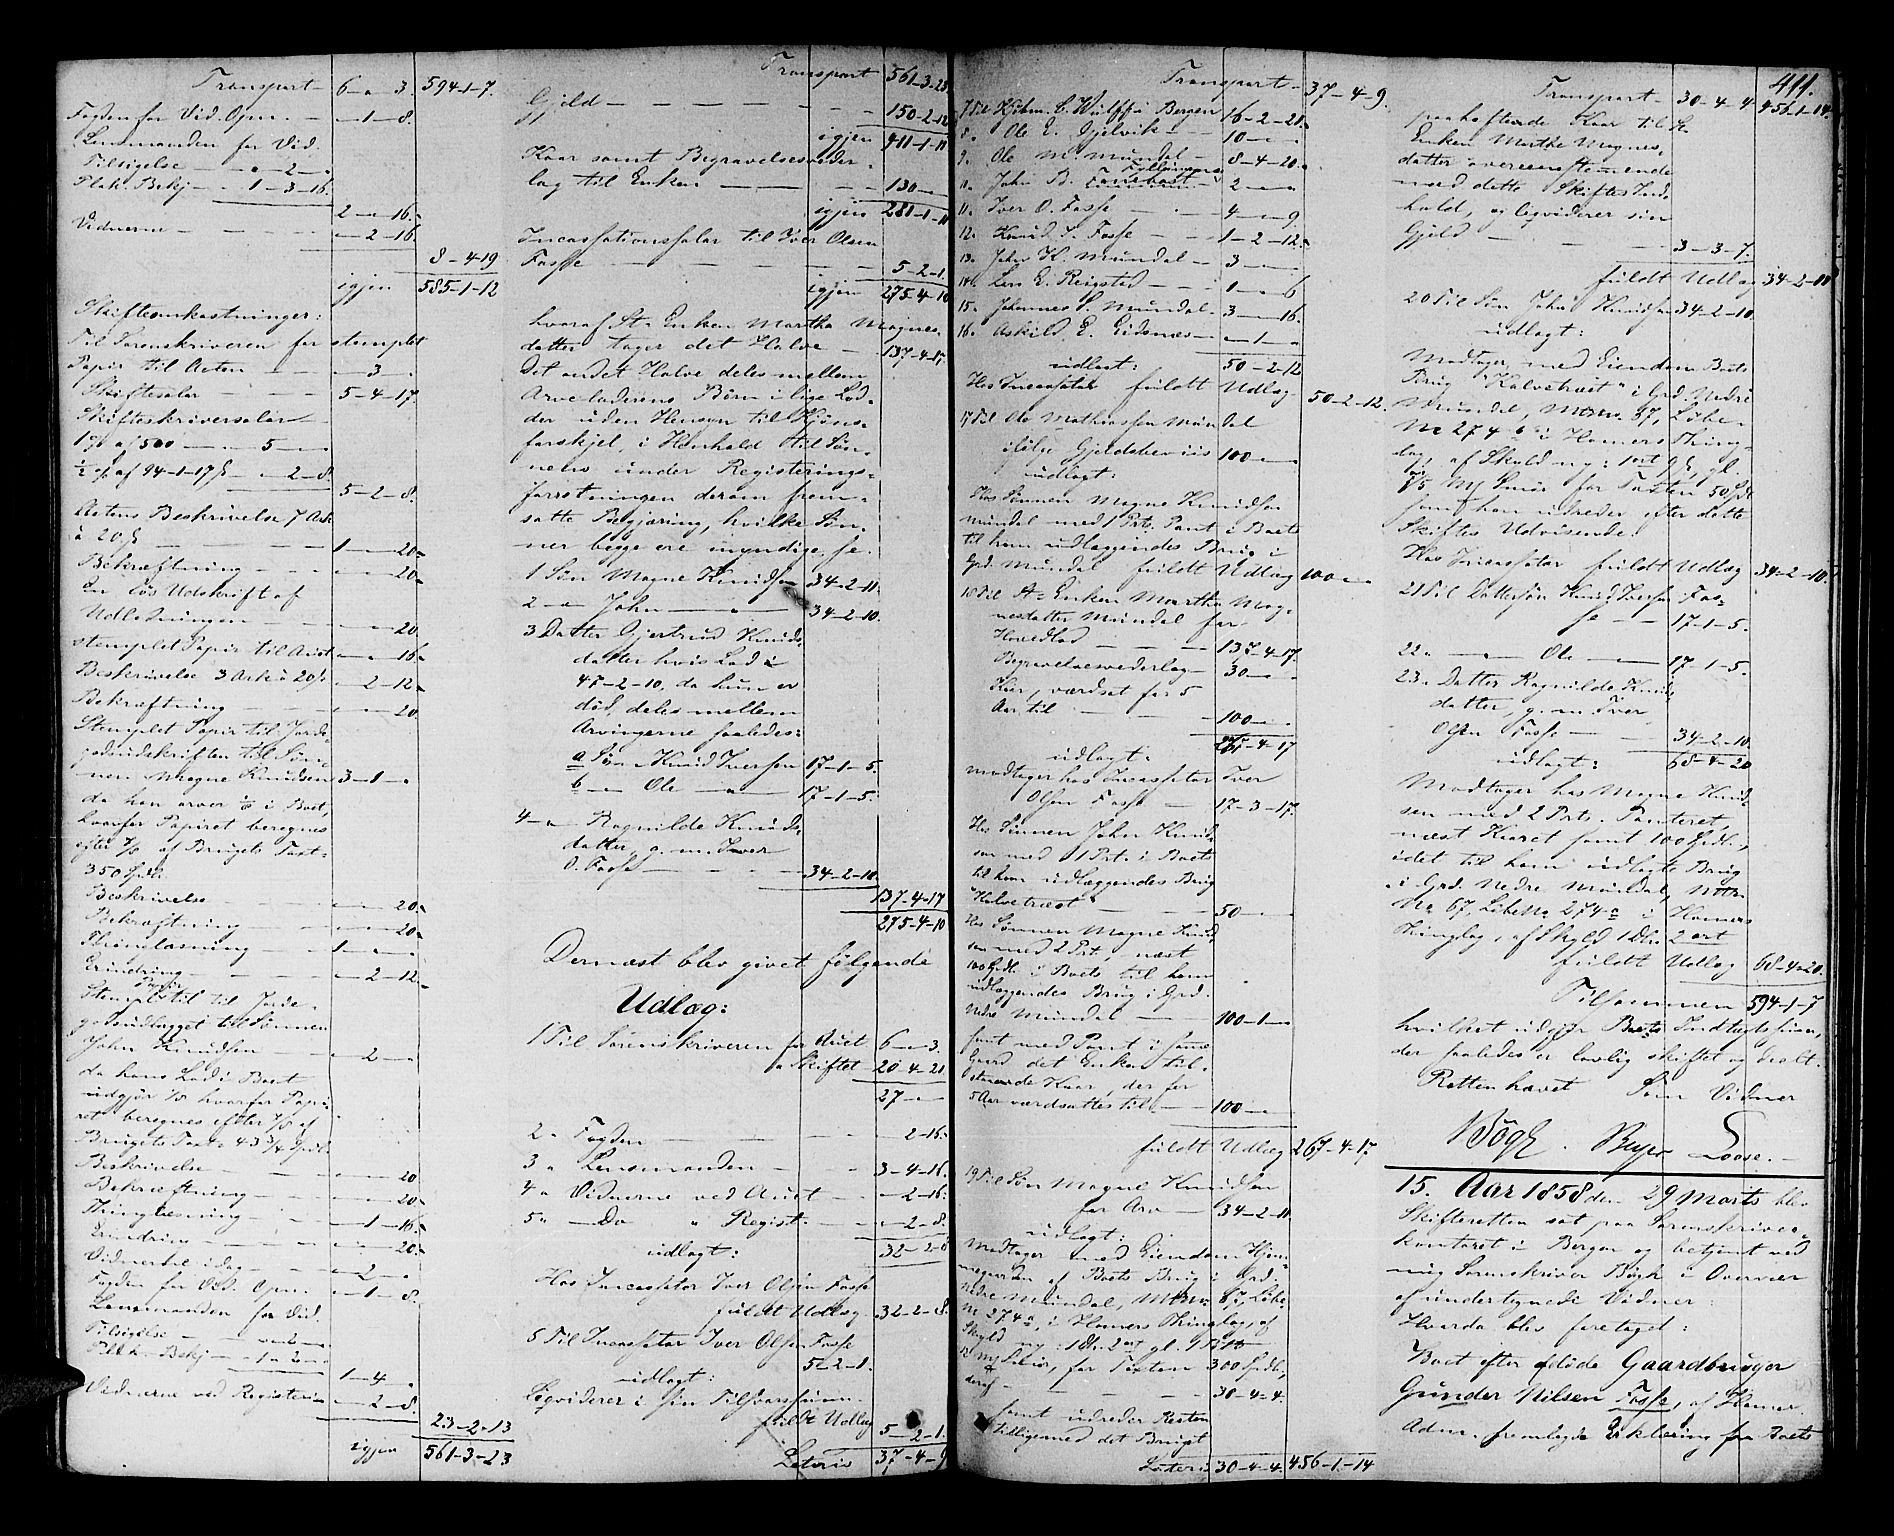 Transport - 6 - „ - 3. 594-1-7.
Fogden for Vid. Opn. - „ -1-8.
Lensmanden for Vid.
Tilsigelse - „ -2- „
Plak. Bekj - 1-3-16.
2 - „ -16.
Vidnerne - - - „ -2-16.
8-4-19
igjen 585-1-12
Skifteomkostninger:
Til Sorenskriveren for stemplet
Papir til Acten - - „ -3- „
Skiftesalar - - - 5-4-17.
Skifteskriversalar -
1 % af 500 - 5 - „
½ % af 94-1-17 ß - „ -2-8.
5-2-8.
Actens Beskrivelse 7 Ark
à 20 ß - - - 1 - „ -20.
Bekræftning - - - „ - „ -20.
En løs Udskrift af
Udlodningen - - „ - „ -20.
stemplet Papir til Auct - „ - „ -16.
Beskrivelse 3 Ark à 20 ß - „ -2-12.
Bekræftning - - „ - „ -20.
Stemplet Papir til Jorde-
godsudskriften til Søn-
nen Magne Knudsen 3-1- „
da han arver 1/6 i Boet,
hvorfor Papiret beregnes
efter 5/6 af Brugets Taxt:
350 Spdl.
Beskrivelse - - - „ - „ -20.
Bekræftning - - „ - „ -20.
Thinglæsning - - 1 - „ - „
Erindring - - - „ -2-12.
Stempl. Papir til til Jorde-
godsudlægget til Sønnen
John Knudsen - - „ -2- „
da hans Lod i Boet
udgjør 1/6 hvorfor Papi-
ret beregnes efter 5/6 af
Brugets Taxt: 43¾ Spdl.
Beskrivelse - - - „ - „ -20
Bekræftning - - „ - „ -20.
Thinglæsning - - „ -1-16.
Erindring - - - „ - „ -20.
Vidnerne idag - - „ -2- „
Fogden for Vid. Opn. - „ -1-8.
Lensmanden for Vid.
Tilsigelse -
Plak. Bekj - 1 - „ 2 - „
1-4- „
Vidnerne ved Registerin - „ -2-8.
23-2-13
igjen 561-3-23
Transport 561-3-23
Gjeld - - - - - 150-2-12
igjen 411-1-11
Kaar samt Begravelsesveder-
lag til Enken - - - 130- „
igjen 281-1-11
Incassationssalar til Iver Olsen
Fosse - - - - - 5-2-1.
igjen 275-4-10
hvoraf St: Enken Martha Magnes-
datter tager det Halve - 137-4-17.
Det andet Halve deles mellem
Arveladerens Børn i lige Lod-
der uden Hensyn til Kjøns-
forskjel, i Henhold til Søn-
nens under Registerings-
forretningen derom frem-
satte Begjæring, hvilke Søn-
ner begge ere myndige, se.
1 Søn Magne Knudsen 34-2-11.
2 - „ John - „ - 34-2-10.
3 Datter Gjertrud Knuds-
datter hvis Lod i
47-2-10. da hun er
død, deles mellem
Arvingerne saaledes:
a Søn Knud Iversen 17-1-5.
b - „ Ole - „ - 17-1-5.
4 - „ Ragnilde Knuds-
datter, g. m. Iver
O. Fosse - - - 34-2-10.
137-4-17
275-4-10
Dernæst blev givet følgende
Udlæg:
1 Til Sorenskriveren for Auct 6 - „ -3.
„ Skiftet 20-4-21.
27 - „ - „
2 „ Fogden - - - - „ -2-16.
3 „ Lensmanden - - - 3-4-16.
4 „ Vidnerne ved Auct - „ -2-16.
5 „ - Do „ Regist. - - „ -2-8.
udlagt: 32-2-8
Hos Incassator Iver Olsen Fosse
fuldt Udlæg 32-2-8.
5 Til Incassator Iver Olsen Fosse
5-2-1.
udlagt:
Liqviderer i sin Tilsvarssum.
fuldt Udlæg 5-2-1.
Lateris 37-4-9
Transport - 37-4-9.
7 Til Kjbm. C. Wulff i Bergen 16-2-20.
8. Ole E. Gjelvik - - 10 - „ - „
9. Ole M. Mundal - 8-4-20.
10. John B. - 2 - „ - „
11. Iver O. Fosse - - 4 - „ -9.
12. Knud I. Fosse - - 1-2-12.
13. John K. Mundal - 3 - „ - „
14. Lars E. Reigsted - - 1 - „ -6
15. Johannes S. Mundal - 3 - „ -16.
16. Askild E. Eidsnæs - „ -1- „
udlagt: 50-2-12
Hos Incassator fuldt Udlæg 50-2-12.
17 Til Ole Mathiassen Mundal
ifølge Gjeldsbeviis 100 - „ - „
udlagt:
Hos Sønnen Magne Knudsen
Mundal med 1 Prt. Pant i Boets
til ham udlæggendes Brug i
Grd. Mundal fuldt Udlæg 100 - „ - „
18 Til St: Enken Martha Mag-
nesdatter Mundal for
Hovedlod - - - 137-4-17.
Begravelsesvederlag - 30 - „ - „
Kaar, værdsat for 5
Aar til - - - 100 - „ - „
267-4-17
udlagt:
modtager hos Incassator Iver
Olsen Fosse - 17-3-17.
Hos Sønnen John Knud-
sen med 1 Prt. i Boets
til ham udlæggendes Brug
"Kalvetræet" - - 50 - „ - „
Hos Sønnen Magne Knud-
sen med 2 Prt., næst
100 Spdl. i Boets til ham
udlæggendes Brug i Grd.
Nedre Mundal - - 100-1- „
samt med Pant i samme
Gaard det Enken til-
staaende Kaar, der for
5 Aar værdsattes til - - 100 - „ - „
fuldt Udlæg 267-4-17
19 Til Søn Magne Knudsen
for Arv - 34-2-11.
udlagt:
Modtager med Eiendom Hjem-
megaarden af Boets Brug i Grd.
Nedre Mundal, Mtr. No 67, Løbe-
No 274 a, i Hammers Thinglag, af
Skyld ny: 1 Dlr. 2 ort gl.
Smør, for Taxten 300 Spdl.
deraf - - - - 30-4-4.
samt udreder Resten
tilligemed det Bruget
Lateris 30-4-4. 456-1-14
411.
Transport - 30-4-4 456-1-14.
paaheftende Kaar til St:
Enken Marthe Magnes-
datter overeenstemmende
med dette Skiftes Ind-
hold, og liqviderer sin
Gjeld - - - - 3-3-7.
fuldt Udlæg 34-2-11
20 Til Søn John Knudsen 34-2-10.
udlagt:
Modtager med Eiendom Boets
Brug "Kalvetræet" i Grd. Nedre
Mundal, Mtr. No 67, Løbe-
No 274 b i Hammers Thing-
lag, af Skyld ny: 1 ort 9 ß, gl.
Smør for Taxten 50 Spdl
som han udreder efter dette
Skiftes Udvisende.
Hos Incassator fuldt Udlæg 34-2-10.
21 Til Dattersøn Knud Iversen Fos-
se - - 17-1-5.
22 „ - „ - Ole - „ - 17-1-5
23. Datter Ragnilde Knuds-
datter, g. m. Iver
Olsen Fosse - - 34-2-10.
udlagt: 68-4-20
Modtager hos Magne Knud-
sen med 2 Prt. Panteret
næst Kaaret samt 100 Spdl.,
i det til ham udlagte Brug
i Grd. Nedre Mundal, Mtr.
No 67, Løbe No 274 a i Hammers
Thinglag, af Skyld 1 Dlr. 2 ort
fuldt Udlæg 68-4-20.
Tilsammen 594-1-7
hvilket udgjør Boets Indtægtssum,
der saaledes er lovlig skiftet og deelt.
Retten hævet Som Vidner
Bøgh. Beyer Loose. -
15. Aar 1858 den 29 Marts blev
Skifteretten sat paa Sorenskriver-
kontoret i Bergen og betjent ved
mig Sorenskriver Bøgh i Overvær
af undertegnede Vidner.
Hvorda blev foretaget:
Boet efter afdøde Gaardbruger
Gunder Nilsen Fosse, af Hamer.
Adm. fremlagde Erklæring fra Boets